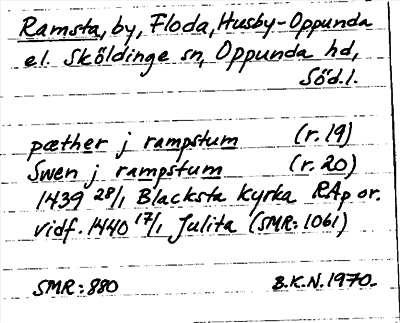 Ramsta, by, Floda, Husby-Oppunda
el. Sköldinge sn, Oppunda hd,
Söd.l.
pæther j rampstum (r. 19)
Swen j rampstum (r. 20)
1439 28/1 Blacksta kyrka RAp or.
vidf. 1440 17/1 Julita (SMR: 1061)
SMR: 880 B.K.N. 1970.